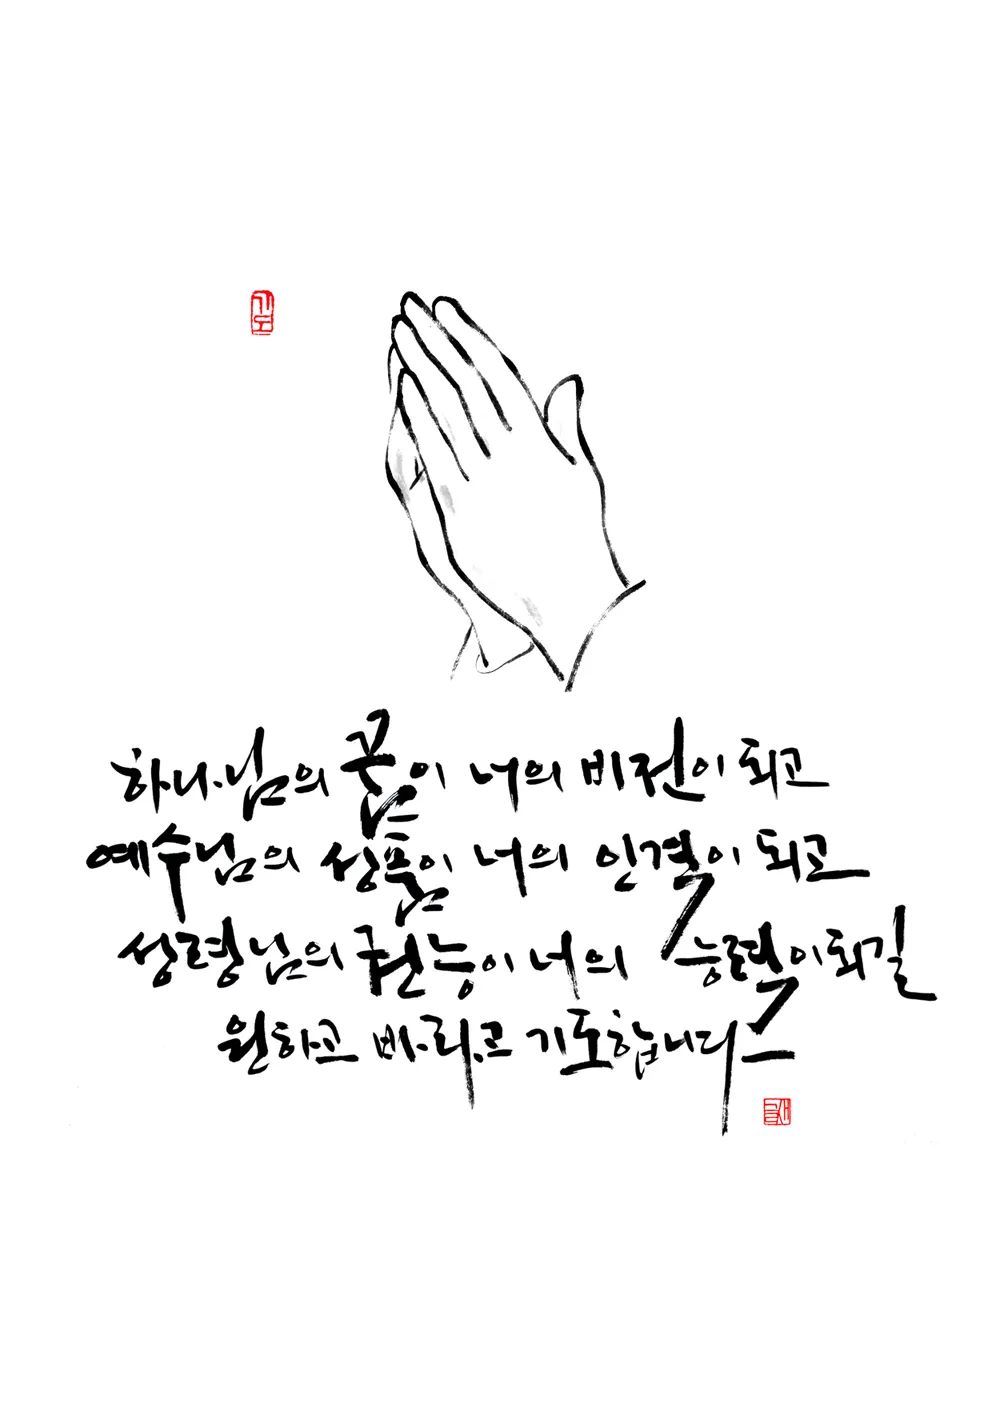 기도
하나님의 꿈이 너의 비전이 되고
예수님의 성품이 너의 인격이 되고
성령님의 권능이 너의 능력이 되길
원하고 바라고 기도합니다